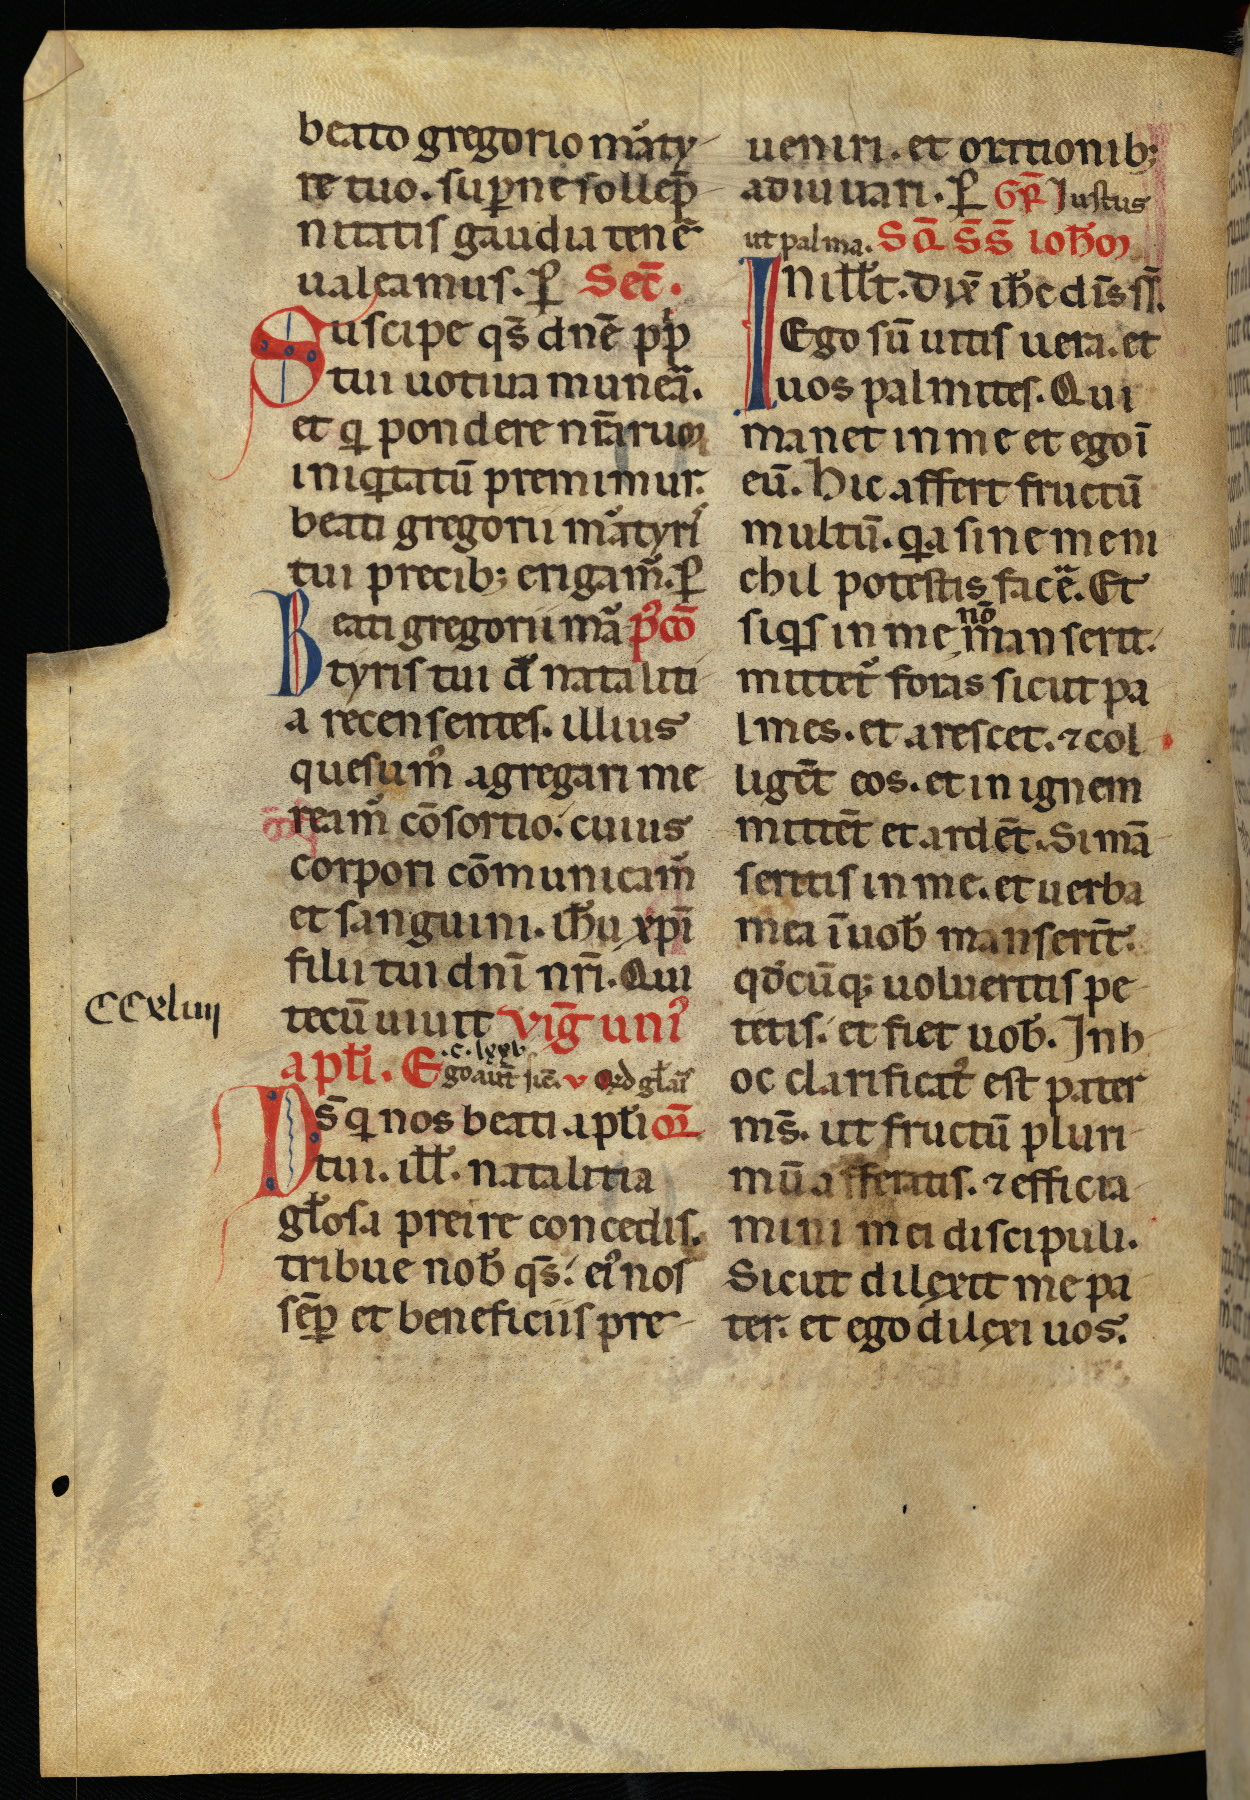 beato gregorio mãty
re tuo. suꝑne sollẽp
nitatis gaudia tenẽ
ualeamus. ꝑ Sec̃.
Suscipe qs̃ dnẽ pp̃
tui uotiua munẽa.
et qͥ pondere nr̃aruꝫ
iniqͥtatũ premimur.
beati gregorii mãtyrꝰ
tui precibꝫ erigam̃. ꝑ
Beati gregorii mã pꝰcõ
tyris tui đ nataliti
a recensentes. illius
quesumꝰ agregari me
ream̃ cõsortio. cuius
corpori cõmunicam̃
et sanguini. ih̃u xp̃i
filii tui dnĩ nr̃i. Qui
tecũ uiuit vig̃ uniꝰ
CCxliiij
apl̃i. Ego aut̃ sic̃. v Qd gl̃aĩ
.c. lxxv
Ds̃ qͥ nos beati apl̃i or̃
tui. ill̃. natalitia
gl̃osa preire concedis.
tribue nob̃ qs̃. eiꝰ nos
sẽꝑ et beneficiis pre
ueniri. et oratiónibꝫ
adiuuari. ꝑ Gr̃ Iustus
ut palma. Sq̃ s̃s̃ ioh̃ꝫ
IN ill̃t. dix̃ ih̃c dĩs sĩ.
Ego sũ uitis uera. et
uos palmites. Qui
manet in me et ego ĩ
eũ. hic affert fructũ
multũ. qͥa sine me ni
chil potestis facẽ. Et
siqͥs in me nõ manserit.
mittetꝰ foras sicut pa
lmes. et arescet. ⁊ col
ligẽt eos. et in ignem
mittẽt et ardẽt. Si mã
seritis in me. et uerba
mea ĩ uob̃ manserĩt.
qđcũqꝫ uolueritis pe
tetis. et fiet uob̃. Inh
oc clarificatꝰ est pater
ms̃. ut fructũ pluri
mũ afferatis. ⁊ efficia
mini mei discipuli.
Sicut dilexit me pa
ter. et ego dilexi uos.